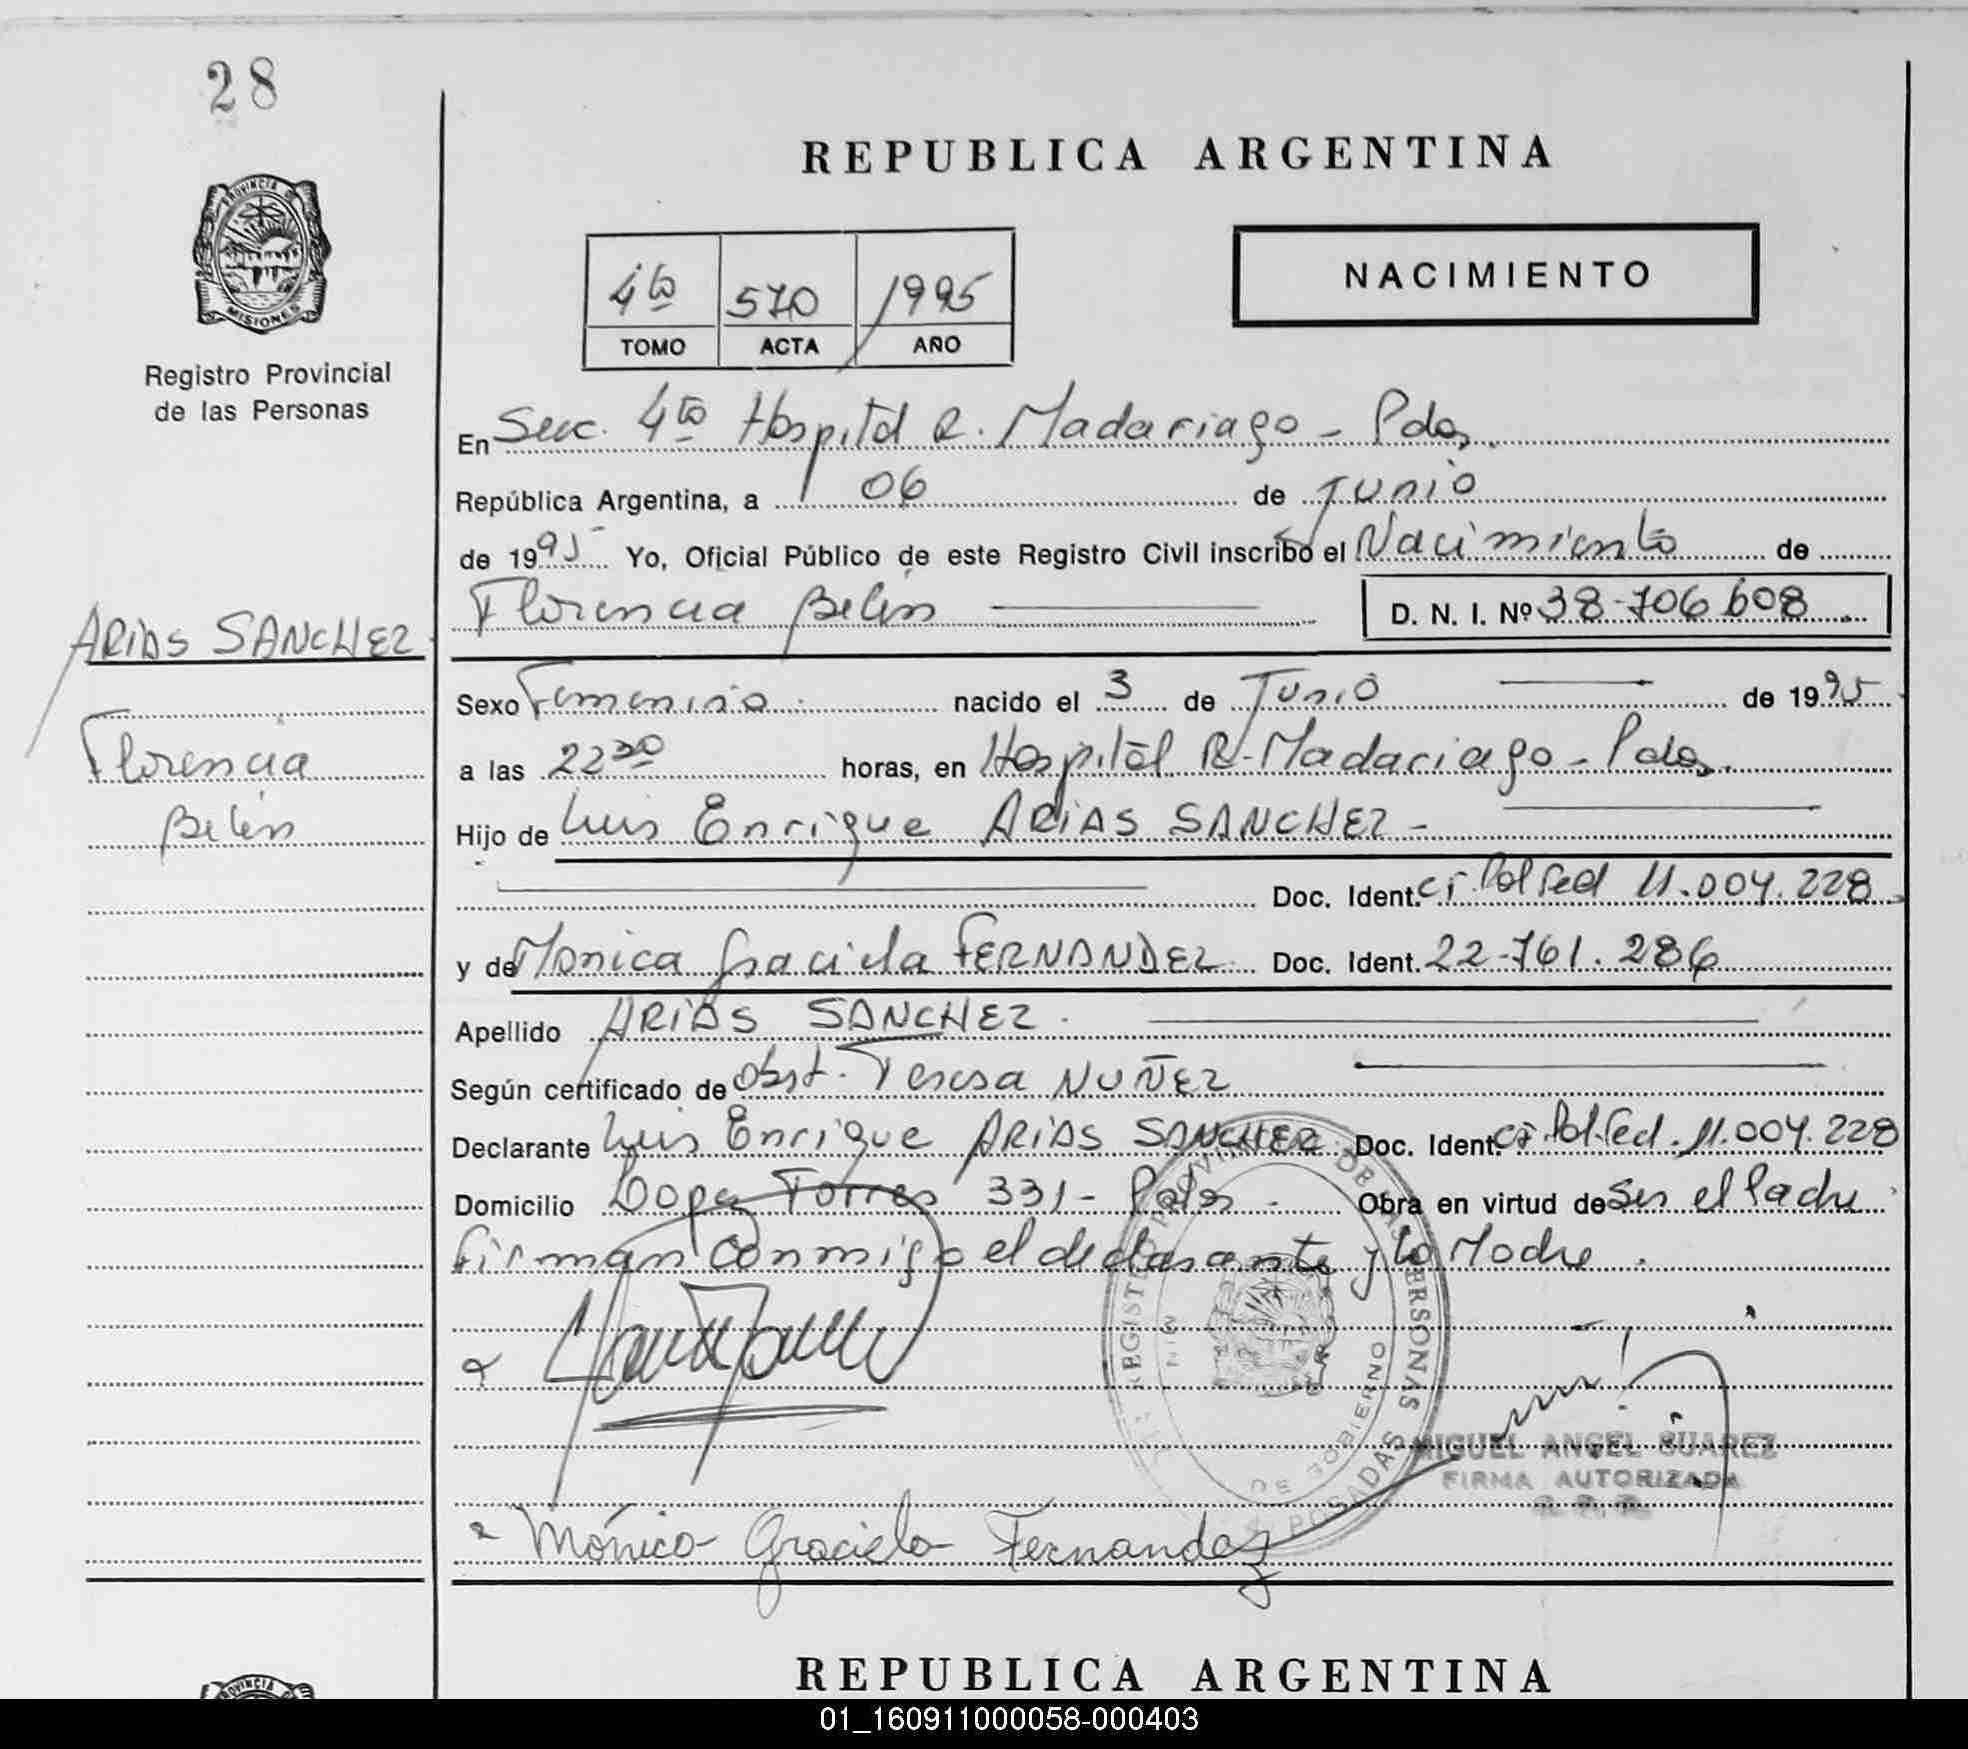 28
REPUBLICA ARGENTINA
PROVINCIA DE
MISIONES
Registro Provincial
de las Personas
4to 570 1995
TOMO ACTA AÑO
NACIMIENTO
En Secc. 4to Hospital R. Madariaga - Pdas.
República Argentina, a 06 de Junio
de 1995 Yo, Oficial Público de este Registro Civil inscribo el Nacimiento de
Florencia Belén D. N. I. Nº 38.706.608
ARIAS SANCHEZ
Florencia
Belén
Sexo Femenino. nacido el 3 de Junio de 1995.
a las 22 30 horas, en Hospital R. Madariaga - Pdas.
Hijo de Luis Enrique ARIAS SANCHEZ -
Doc. Ident. CI. Pol Fed 11.004.228
y de Monica Graciela FERNANDEZ Doc. Ident. 22.761.286
Apellido ARIAS SANCHEZ.
Según certificado de Obst. Teresa NUÑEZ
Declarante Luis Enrique ARIAS SANCHEZ Doc. Ident. CI. Pol. Fed. 11.004.228
Domicilio Lopez Torres 331 - Pdas. Obra en virtud de Ser el Padre
Firman conmigo el declarante y la Madre.
REGISTRO PROVINCIAL DE LAS PERSONAS
POSADAS
MIN DE GOBIERNO
MIGUEL ANGEL SUAREZ
FIRMA AUTORIZADA
Mónica Graciela Fernandez
REPUBLICA ARGENTINA
PROVINCIA
01_160911000058-000403